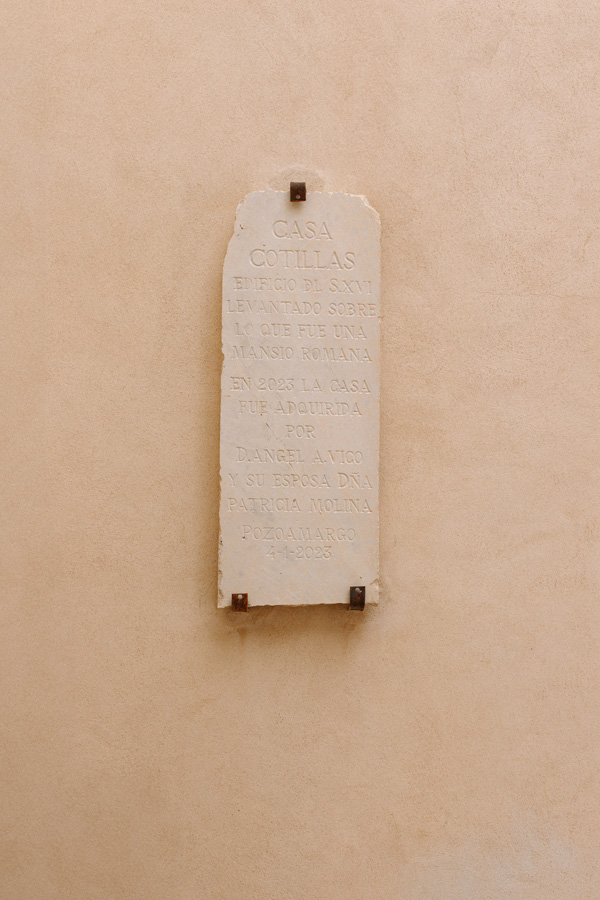 CASA
COTILLAS
EDIFICIO DL S.XVI
LEVANTADO SOBRE
LO QUE FUE UNA
MANSIO ROMANA
EN 2023 LA CASA
FUE ADQUIRIDA
POR
D.ANGEL A.VICO
Y SU ESPOSA DÑA
PATRICIA MOLINA
POZOAMARGO
4-1-2023